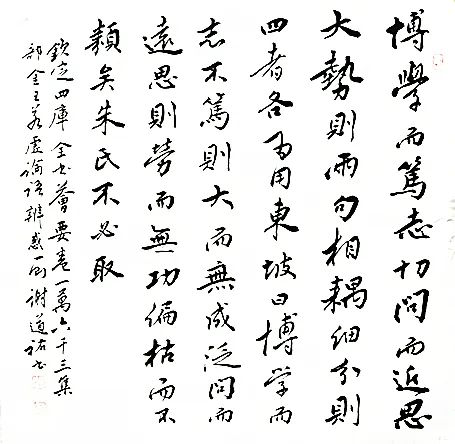 博學而篤志切問而近思
大勢則兩句相耦細分則
四者各為用東坡曰博学而
志不篤則大而無成泛問而
遠思則勞而無功偏枯而不
類矣朱氏不必取
欽定四庫全书薈要卷一萬六千三集
部金王若虛論語辨惑一则謝道祐书